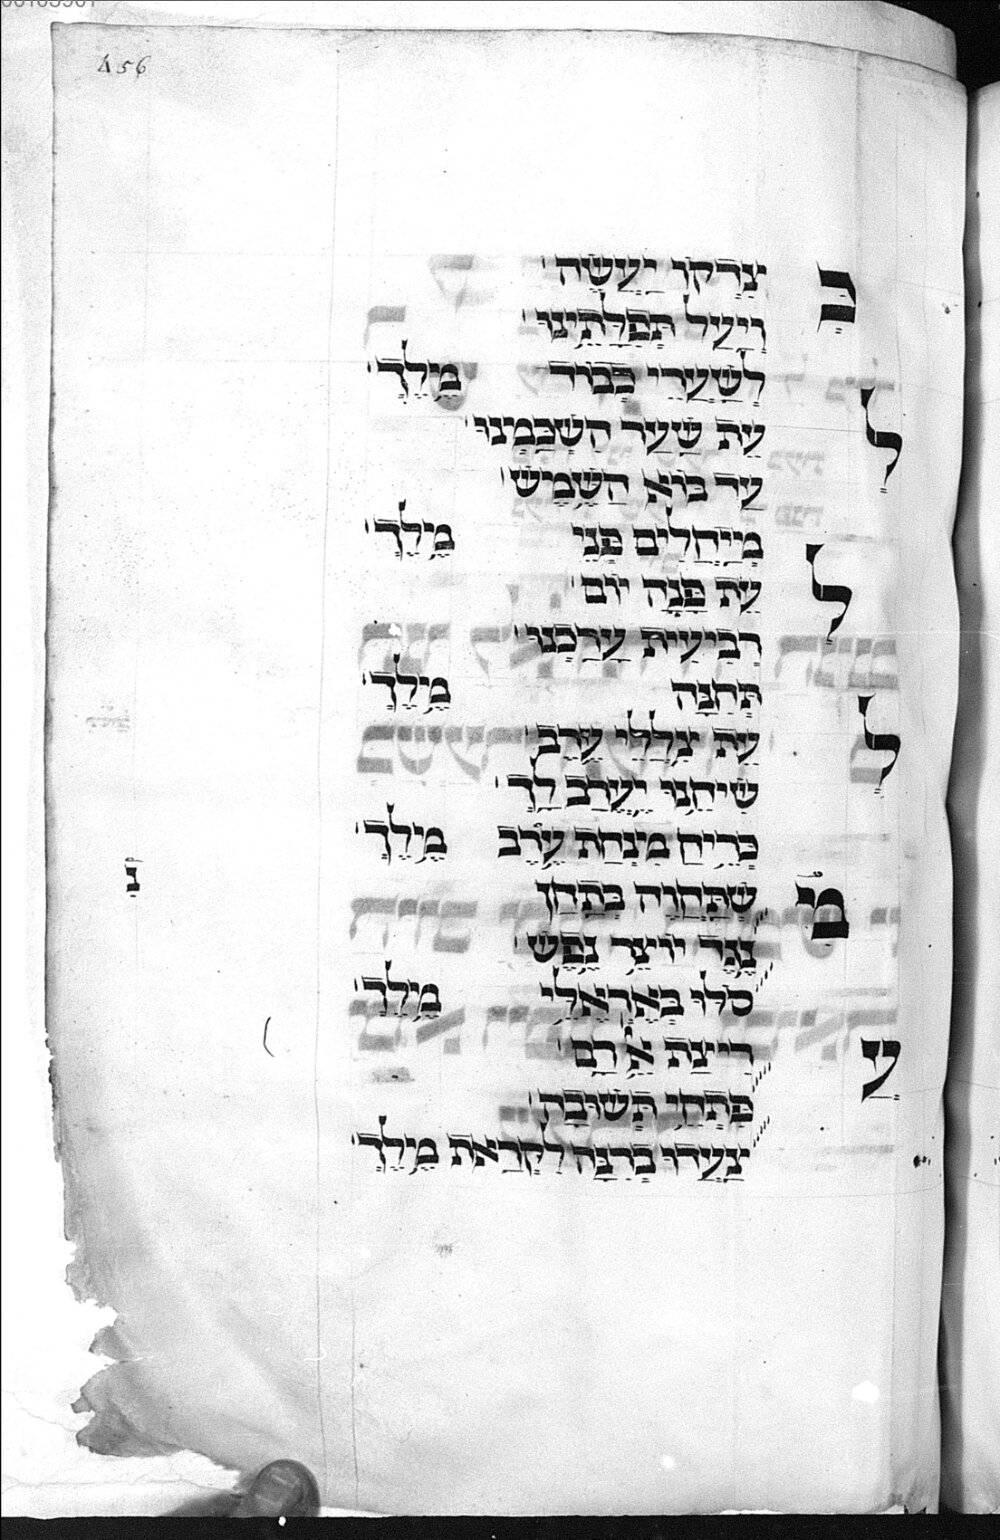 456
בְּ צִדְקוֹ יַעֲשֶׂה'
וְיַעַל תְּפִלָּתֵינוּ'
לְשַׁעֲרֵי כְּבוֹד מֶילֶךְ'
לְ עֵת שַׁעַר הִשְׁכַּמְנוּ'
עַד בּוֹא הַשֶּׁמֶשׁ'
מְיַיחֲלִים פְּנֵי מֶילֶךְ'
לְ עֵת פָּנָה יוֹם'
רְבִיעִית עָרַכְנוּ'
תְּחִנָּה מֶילֶךְ'
לְ עֵת צִלְלֵי עֶרֶב'
שִׂיחֵנוּ יֶעֱרַב לָךְ'
כְּרֵיחַ מִנְחַת עֶרֶב מֶילֶךְ'
מִ שְׁתַּחֲוֶה בְּתַחַן
נֶגֶד יוֹצֵר נֶפֶשׁ'
סֹלּוּ בְּאֶרְאֶלֵּי מֶילֶךְ'
עֲ רִיצַת אֹ רַם'
פִּתְחֵי תְּשׁוּבָה'
צַעֲדוּ בְרִנָּה לִקְרַאת מֶילֶךְ'
נָ